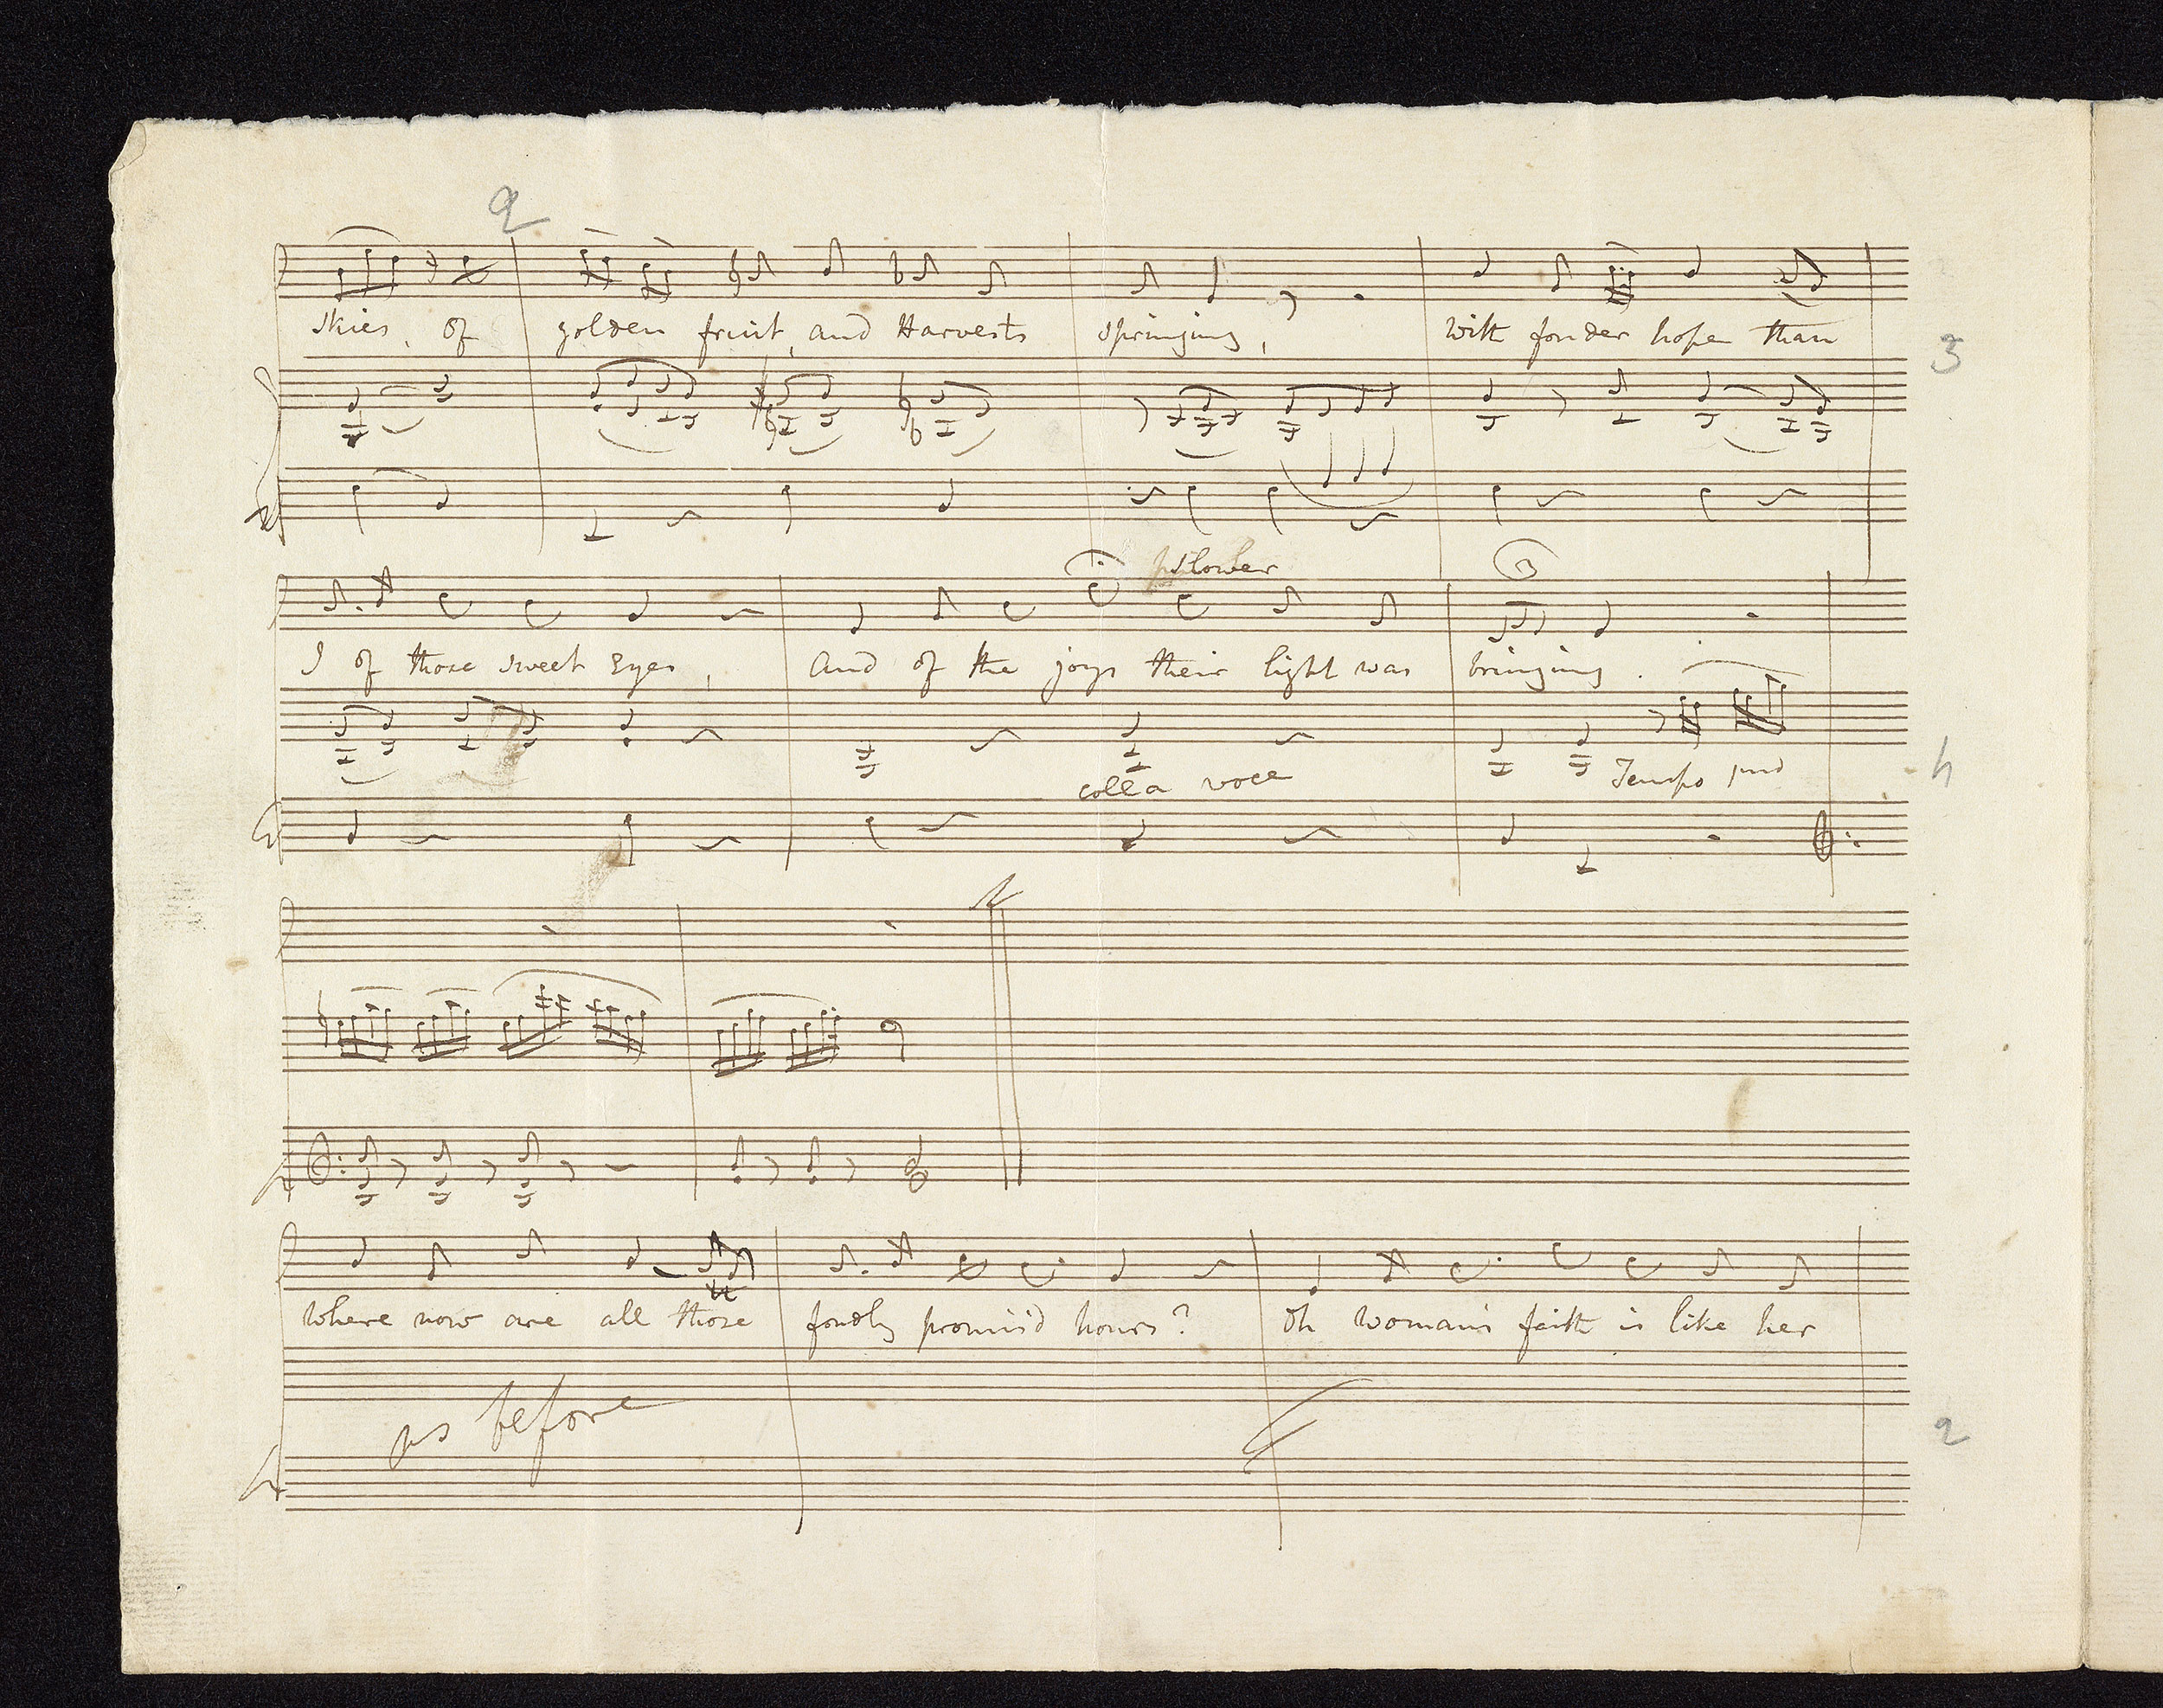 2
skies, of golden fruit, and Harvests springing, with fonder hope than
3
slower
I of those sweet Eyes, and of the joys their light was bringing.
colla voce Tempo pmo
4
where now are all those fondly promis'd hours? Oh woman's faith is like her
as before
2